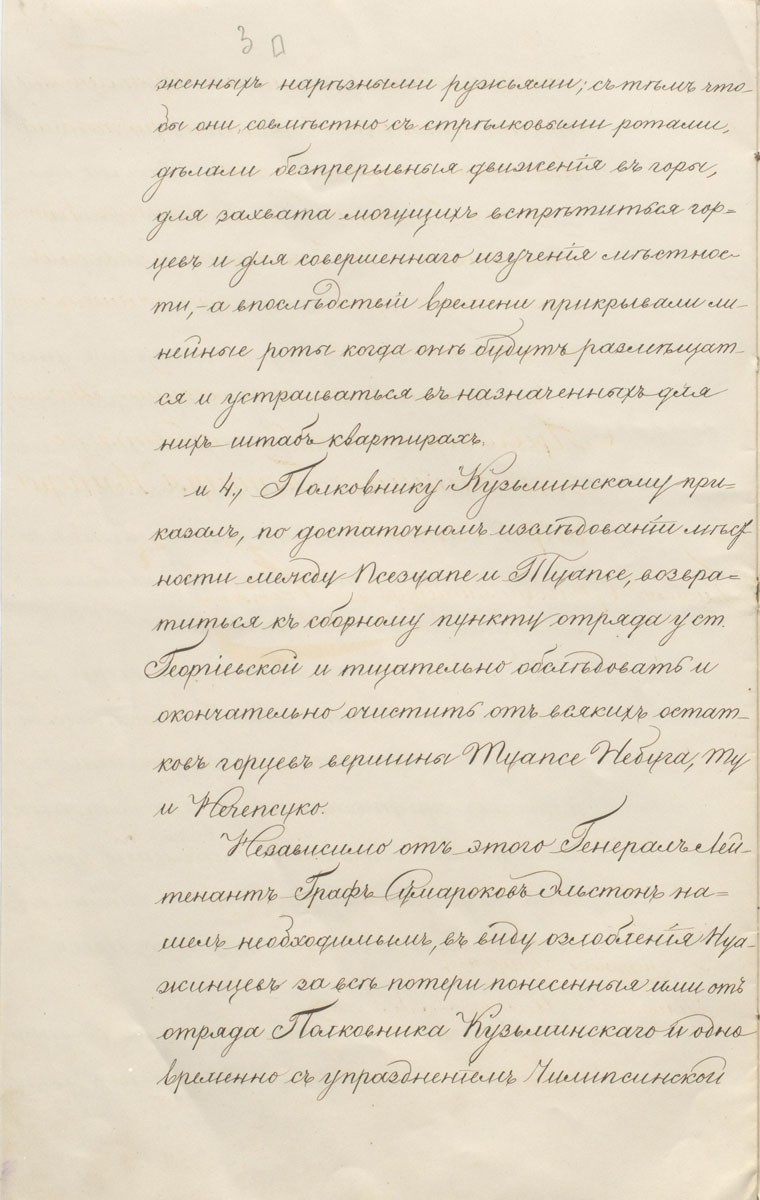 3
женныхъ нарѣзными ружьями; съ тѣмъ что-
бы они, совмѣстно съ стрѣлковыми ротами,
дѣлали безпрерывныя движенія въ горы,
для захвата могущихъ встрѣтиться гор=
цевъ и для совершеннаго изученія мѣстнос-
ти,-а впослѣдствіи времени прикрывали ли-
нейные роты когда онѣ будутъ размѣщат-
ся и устраиваться въ назначенныхъ для
нихъ штабъ квартирахъ.
и 4., Полковнику Кузьминскому при-
казалъ, по достаточномъ изслѣдованіи мѣст
ности между Псезуапе и Туапсе, возвра=
титься къ сборному пункту отряда у ст.
Георгіевской и тщательно обслѣдовать и
окончательно очистить отъ всякихъ остат-
ковъ горцевъ вершины Туапсе Небуга, Ту
и Нечепсуко.
Независимо отъ этого Генералъ Лей-
тенантъ Графъ Сумароковъ Эльстонъ на=
шелъ необходимымъ, въ виду озлобленія Куа-
жинцевъ за всѣ потери понесенныя ими отъ
отряда Полковника Кузьминскаго и одно
временно съ упраздненіемъ Чилипсинской